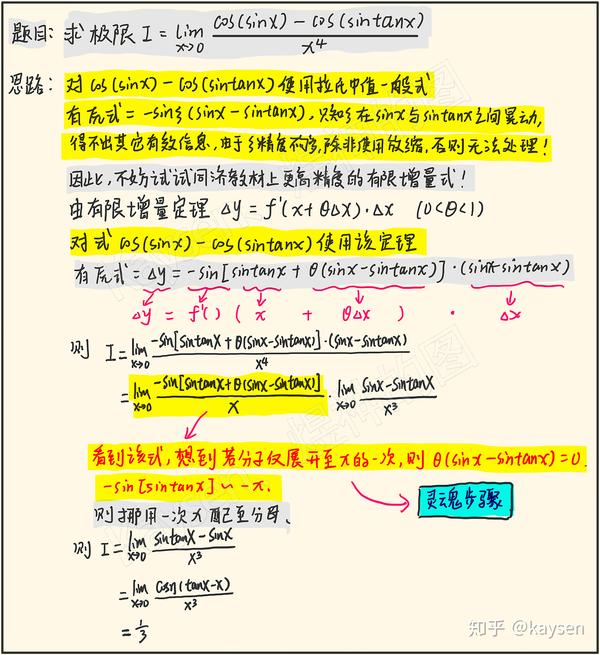 题目: 求极限 I = lim x→0 cos(sinx) - cos(sintanx) / x⁴
思路: 对 cos(sinx) - cos(sintanx) 使用拉氏中值一般式
有原式 = -sinξ (sinx - sintanx), 只知ξ在sinx与sintanx之间晃动,
得不出其它有效信息, 由于ξ精度不够, 除非使用放缩, 否则无法处理!
因此, 不妨试试同济教材上更高精度的有限增量式!
由有限增量定理 Δy = f'(x+θΔx)·Δx (0<θ<1)
对式 cos(sinx) - cos(sintanx) 使用该定理
有原式 = Δy = -sin[sintanx + θ(sinx-sintanx)]·(sinx-sintanx)
Δy = f'( ) ( x + θΔx ) · Δx
则 I = lim x→0 -sin[sintanx + θ(sinx-sintanx)]·(sinx-sintanx) / x⁴
= lim x→0 -sin[sintanx+θ(sinx-sintanx)] / x · lim x→0 sinx-sintanx / x³
看到该式, 想到若分子仅展开至x的一次, 则 θ(sinx-sintanx)=0.
-sin[sintanx] ~ -x.
灵魂步骤
则挪用一次x配已至分母.
则 I = lim x→0 sintanx - sinx / x³
= lim x→0 cosη(tanx-x) / x³
= 1/3
知乎 @kaysen